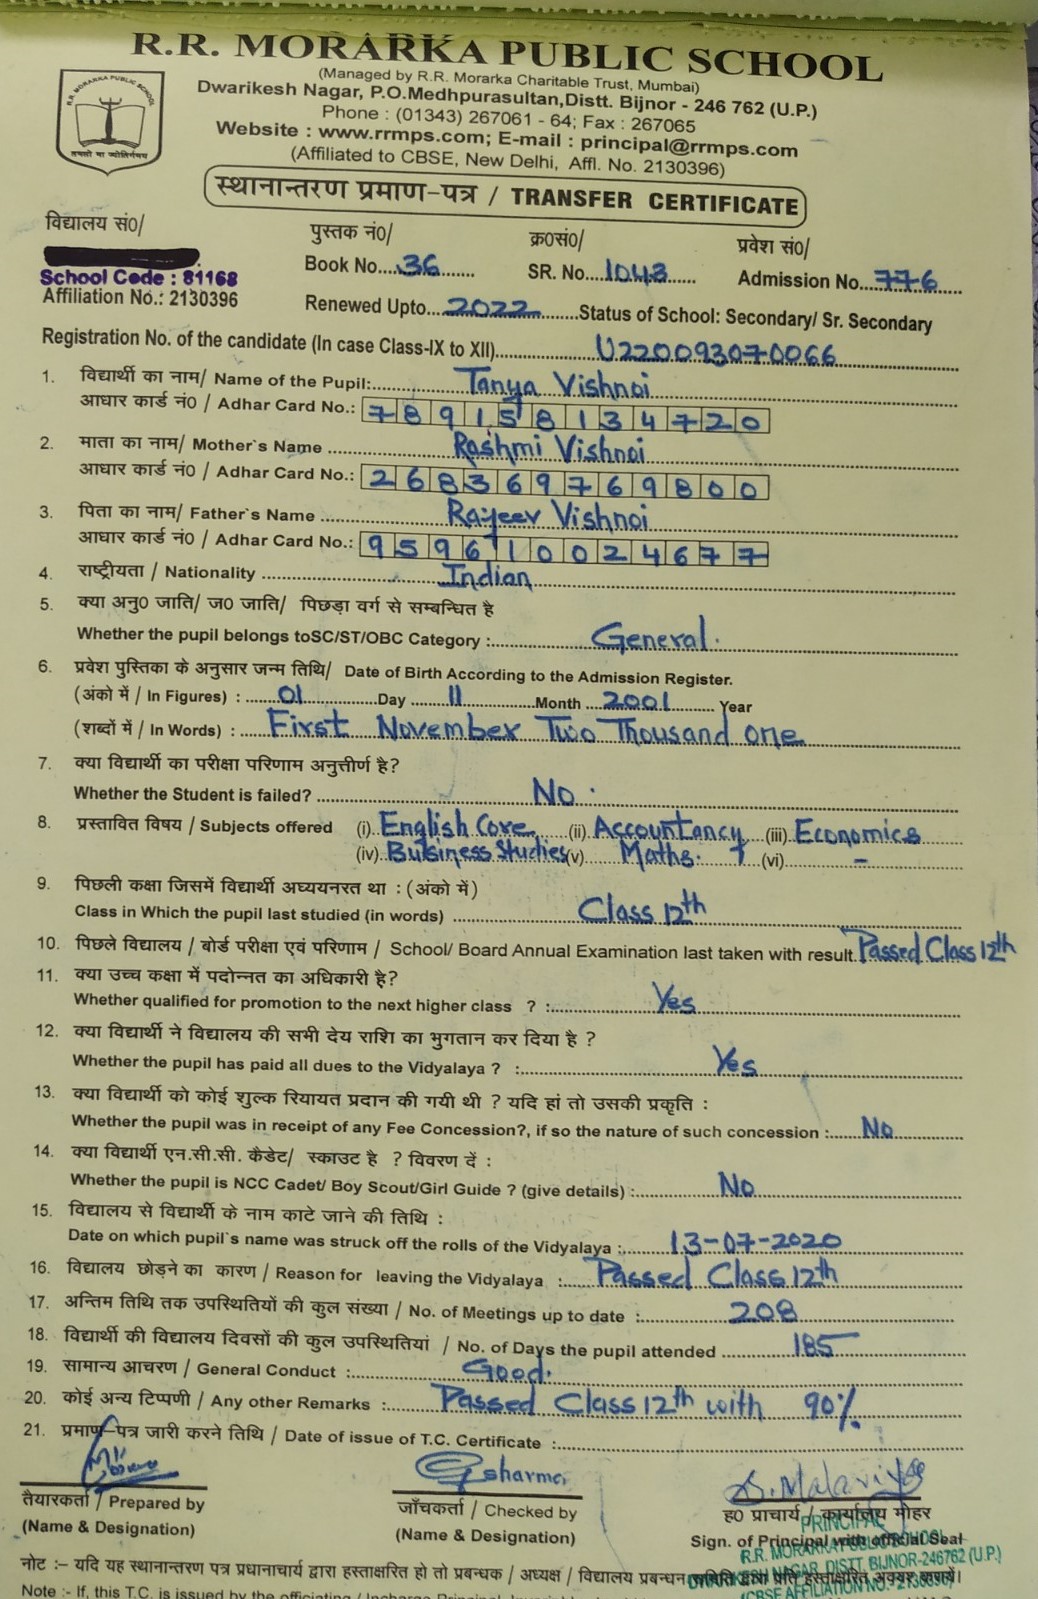 R.R. MORARKA PUBLIC SCHOOL
(Managed by R.R. Morarka Charitable Trust, Mumbai)
Dwarikesh Nagar, P.O.Medhpurasultan,Distt. Bijnor - 246 762 (U.P.)
Phone : (01343) 267061 - 64; Fax : 267065
Website : www.rrmps.com; E-mail : principal@rrmps.com
(Affiliated to CBSE, New Delhi, Affl. No. 2130396)
R.R. MORARKA PUBLIC SCHOOL
तमसो मा ज्योतिर्गमय
स्थानान्तरण प्रमाण-पत्र / TRANSFER CERTIFICATE
विद्यालय सं0/ पुस्तक नं0/ क्र0सं0/ प्रवेश सं0/
School Code : 81168 Book No. 36 SR. No. 1043 Admission No. 776
Affiliation No.: 2130396 Renewed Upto 2022 Status of School: Secondary/ Sr. Secondary
Registration No. of the candidate (In case Class-IX to XII) U220093070066
1. विद्यार्थी का नाम/ Name of the Pupil: Tanya Vishnoi
आधार कार्ड नं0 / Adhar Card No.: 789158134720
2. माता का नाम/ Mother`s Name Rashmi Vishnoi
आधार कार्ड नं0 / Adhar Card No.: 268369769800
3. पिता का नाम/ Father`s Name Rajeev Vishnoi
आधार कार्ड नं0 / Adhar Card No.: 959610024677
4. राष्ट्रीयता / Nationality Indian
5. क्या अनु0 जाति/ ज0 जाति/ पिछड़ा वर्ग से सम्बन्धित है
Whether the pupil belongs toSC/ST/OBC Category : General.
6. प्रवेश पुस्तिका के अनुसार जन्म तिथि/ Date of Birth According to the Admission Register.
(अंको में / In Figures) : 01 Day 11 Month 2001 Year
(शब्दों में / In Words) : First November Two Thousand one
7. क्या विद्यार्थी का परीक्षा परिणाम अनुत्तीर्ण है?
Whether the Student is failed? No.
8. प्रस्तावित विषय / Subjects offered (i) English Core (ii) Accountancy (iii) Economics
(iv) Business Studies (v) Maths. (vi) -
9. पिछली कक्षा जिसमें विद्यार्थी अध्ययनरत था : (अंको में)
Class in Which the pupil last studied (in words) Class 12th
10. पिछले विद्यालय / बोर्ड परीक्षा एवं परिणाम / School/ Board Annual Examination last taken with result Passed Class 12th
11. क्या उच्च कक्षा में पदोन्नत का अधिकारी है?
Whether qualified for promotion to the next higher class ? : Yes
12. क्या विद्यार्थी ने विद्यालय की सभी देय राशि का भुगतान कर दिया है ?
Whether the pupil has paid all dues to the Vidyalaya ? : Yes
13. क्या विद्यार्थी को कोई शुल्क रियायत प्रदान की गयी थी ? यदि हां तो उसकी प्रकृति :
Whether the pupil was in receipt of any Fee Concession?, if so the nature of such concession : No
14. क्या विद्यार्थी एन.सी.सी. कैडेट/ स्काउट है ? विवरण दें :
Whether the pupil is NCC Cadet/ Boy Scout/Girl Guide ? (give details) : No
15. विद्यालय से विद्यार्थी के नाम काटे जाने की तिथि :
Date on which pupil`s name was struck off the rolls of the Vidyalaya : 13-07-2020
16. विद्यालय छोड़ने का कारण / Reason for leaving the Vidyalaya : Passed Class 12th
17. अन्तिम तिथि तक उपस्थितियों की कुल संख्या / No. of Meetings up to date : 208
18. विद्यार्थी की विद्यालय दिवसों की कुल उपस्थितियां / No. of Days the pupil attended 185
19. सामान्य आचरण / General Conduct : Good.
20. कोई अन्य टिप्पणी / Any other Remarks : Passed Class 12th with 90%
21. प्रमाण-पत्र जारी करने तिथि / Date of issue of T.C. Certificate :
Gsharma S. Malaviya
तैयारकर्ता / Prepared by जाँचकर्ता / Checked by ह0 प्राचार्य / कार्यालय मोहर
(Name & Designation) (Name & Designation) Sign. of Principal with official Seal
PRINCIPAL
R.R. MORARKA PUBLIC SCHOOL
DWARIKESH NAGAR, DISTT. BIJNOR-246762 (U.P.)
(CBSE AFFILIATION NO.- 2130396)
नोट :- यदि यह स्थानान्तरण पत्र प्रधानाचार्य द्वारा हस्ताक्षरित हो तो प्रबन्धक / अध्यक्ष / विद्यालय प्रबन्धन समिति द्वारा प्रति हस्ताक्षरित अवश्य करायें।
Note :- If, this T.C. is issued by the officiating / Incharge Principal